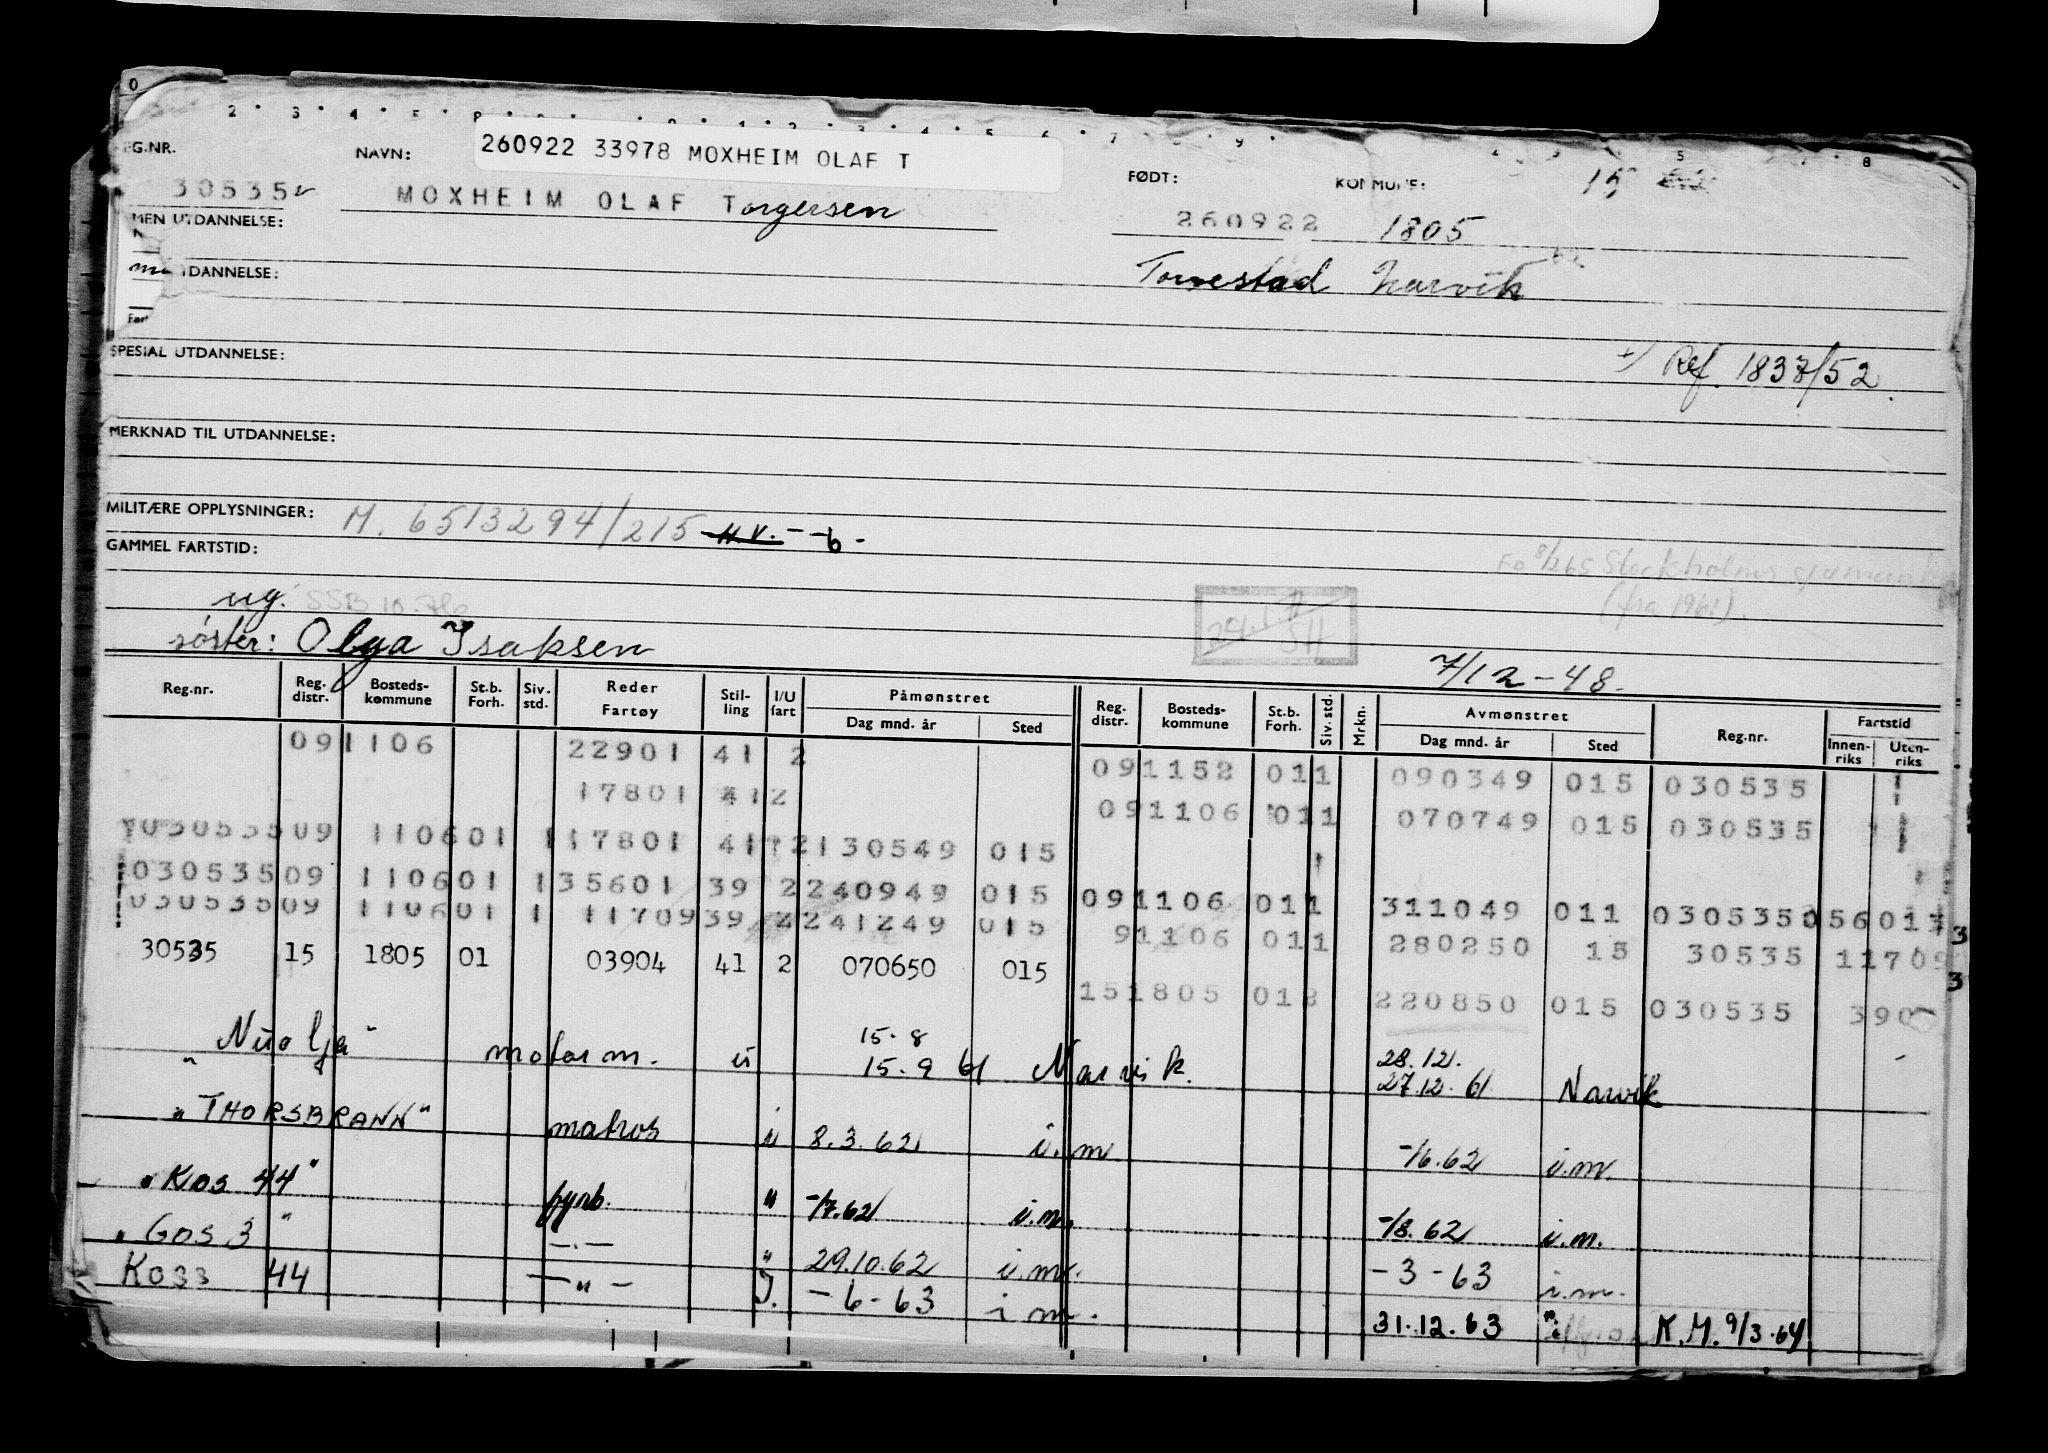 260922 33978 MOXHEIM OLAF T
G.NR. NAVN: FØDT: KOMMUNE: 15
30535 MOXHEIM OLAF Torgersen 260922 1805
MEN UTDANNELSE:
Torrestad Narvik
DANNELSE:
SPESIAL UTDANNELSE:
Ref. 1837/52
MERKNAD TIL UTDANNELSE:
MILITÆRE OPPLYSNINGER: M. 6513294/215 H.V. - b -
GAMMEL FARTSTID:
Stockholms
(fra 1961).
ug.
søster: Olga Isaksen
7/12-48.
Reg.nr. Reg. distr. Bosteds-kommune St.b. Forh. Siv. std. Reder Fartøy Stil-ling I/U fart Påmønstret Dag mnd. år Sted Reg. distr. Bosteds-kommune St.b. Forh. Siv. std. Mrkn. Avmønstret Dag mnd. år Sted Reg.nr. Fartstid Innen-riks Uten-riks
091106 22901 41 2 091152 011 090349 015 030535
17801 412 091106 011 070749 015 030535
03053509 110601 117801 41 2130549 015
03053509 110601 135601 39 2240949 015 091106 011 311049 011 030535056013
03053509 110601 1 1170939 2241249 015 91106 011 280250 15 30535 11709
30535 15 1805 01 03904 41 2 070650 015 151805 012 220850 015 030535 390
15.8 28.12.
"Nuolja" motorm. u 15.9 61 Narvik. 27.12.61 Narvik
"THORSBRANN" matros u 8.3.62 i.m -/6.62 i.m.
"Kos 44" fyrb. " -/7.62 i.m. -/8.62 i.m.
"Gos 3" -.- " 29.10.62 i.m. -3-63 i.m.
Koss 44 -"- J. -6-63 i m. 31.12.63 K.M. 9/3.64